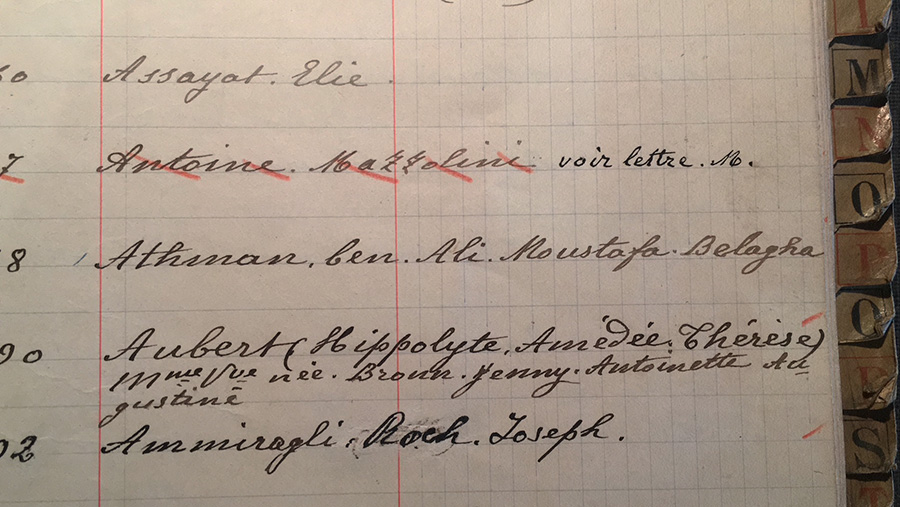 60 Assayat. Elie.
7 Antoine. Mazzolini voir lettre. M.
8 Athman. ben. Ali. Moustafa. Belagha
90 Aubert (Hippolyte. Amédée. Thérèse)
Mme Vve née. Brown. Jenny. Antoinette Au
gustine
92 Ammiragli. Roch. Joseph.
M
N
O
P
Q
R
S
T